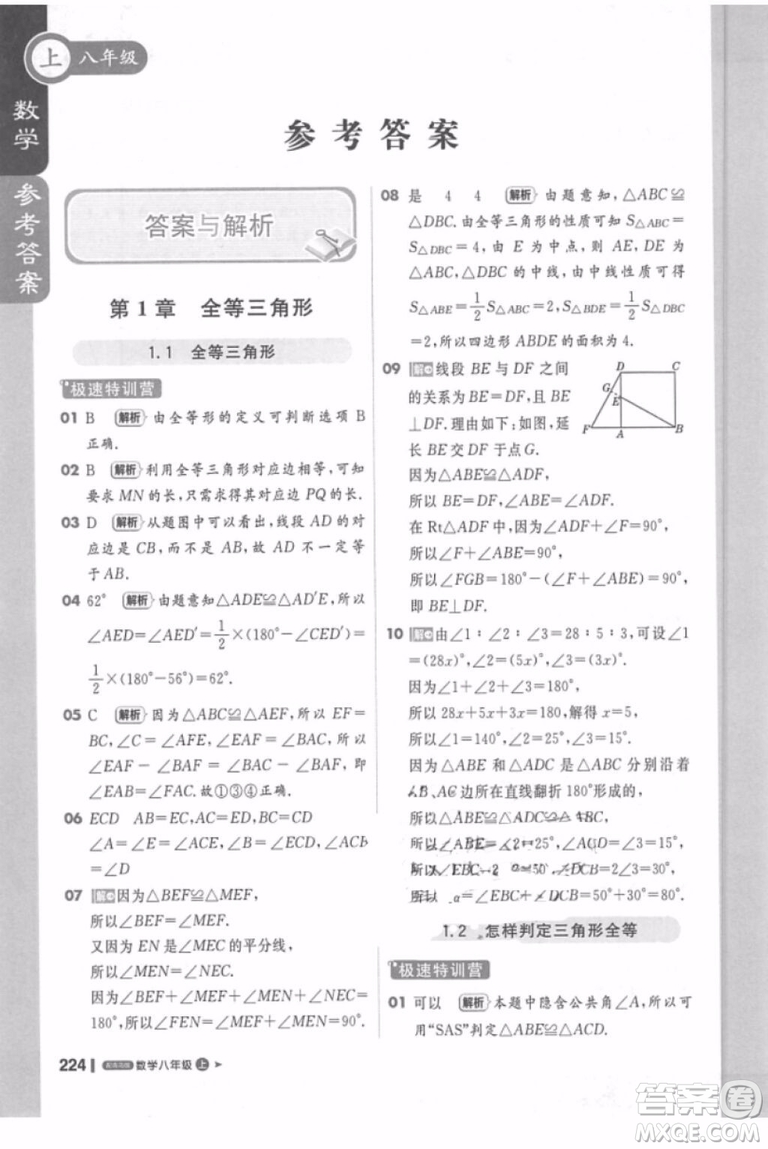 上 八年级
数学
参考答案
参考答案
答案与解析
第1章 全等三角形
1.1 全等三角形
极速特训营
01 B 解析 由全等形的定义可判断选项 B
正确.
02 B 解析 利用全等三角形对应边相等,可知
要求 MN 的长,只需求得线段 PQ 的长.
03 D 解析 从题图中可以看出,线段 AD 的对
应边是 CB,而不是 BC,故线段 AD 应等
于 AB.
04 62° 解析 由题意知△ADE≌△AD′E,所以
∠AED=∠AED′=1/2×(180°-∠CED′)=
1/2×(180°-56°)=62°.
05 C 解析 因为△ABC≌△AEF,所以 EF=
BC,∠C=∠AFE,∠EAF=∠BAC,所以
∠EAF-∠BAF=∠BAC-∠BAF,即
∠EAB=∠FAC.故①③④正确.
06 ECD AB=EC,AC=ED,BC=CD
∠A=∠E=∠ACE,∠B=∠ECD,∠ACB
=∠D
07 解 因为△BEF≌△MEF,
所以∠BEF=∠MEF.
又因为 EN 是∠MEC 的平分线,
所以∠MEN=∠NEC.
因为∠BEF+∠MEF+∠MEN+∠NEC=
180°,所以∠MEF+∠MEN=90°.
08 是 4 4 解析 由题意知,△ABC≌
△DBC.由全等三角形的性质可知
S△ABC=S△DBC=4,由 E 为中点,则 AE,DE 为
△ABC,△DBC 的中线,由中线性质可得
S△ABE=1/2 S△ABC=2,S△BDE=1/2 S△DBC
=2,所以四边形 ABDE 的面积为
1.4.
09 解 线段 BE 与 DF 之间
的关系为 BE=DF 且 BE
⊥DF.理由如下:如图,延
长 BE 交 DF 于点 G.
D C G E F A B
因为△ABE≌△ADF,
所以 BE=DF,∠ABE=∠ADF.
在 Rt△ADF 中,因为∠ADF+∠F=90°,
所以∠F+∠ABE=90°,
所以∠FGB=180°-∠F-∠ABE=90°,
即 BE⊥DF.
10 解 由∠1∶∠2∶∠3=28∶5∶3,可设∠1
=(28x)°,∠2=(5x)°,∠3=(3x)°.
因为∠1+∠2+∠3=180°,
所以 28x+5x+3x=180,解得 x=5,
所以∠1=140°,∠2=25°,∠3=15°.
因为△ABE 和△ADC 是△ABC 分别沿着
AB,AC 所在的直线翻折 180°形成的,
所以△ABE≌△ADC≌△ABC,
所以∠ABE=∠2=25°,
所以∠EBC=2∠2=50°,∠DCB=2∠3=30°,
所以∠α=∠EBC+∠DCB=50°+30°=80°.
1.2 怎样判定三角形全等
极速特训营
01 可以 解析 本题中隐含公共角∠A,所以可
用“SAS”判定△ABE≌△ACD.
224 数学八年级 上
答案圈
MXQE.COM